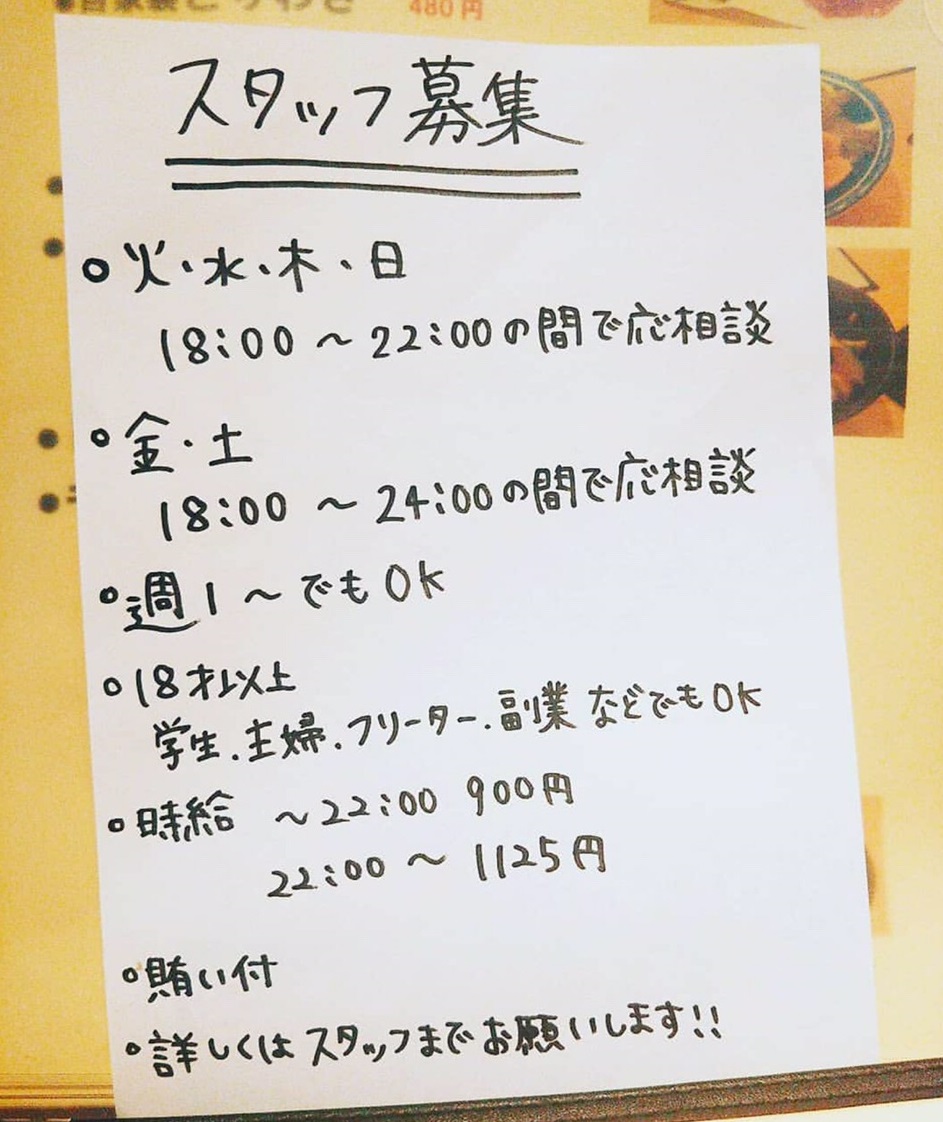 480円
スタッフ募集
火・水・木・日
18:00～22:00の間で応相談
金・土
18:00～24:00の間で応相談
週1～でもOK
18才以上
学生.主婦.フリーター.副業などでもOK
時給 ～22:00 900円
22:00～ 1125円
賄い付
詳しくはスタッフまでお願いします!!